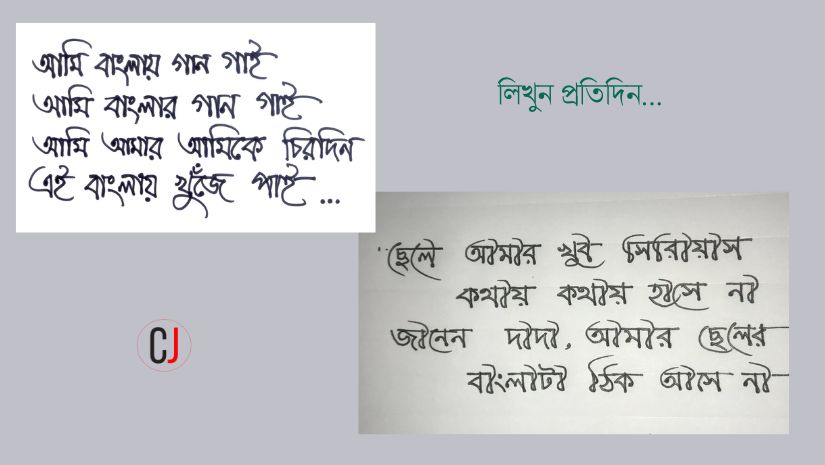 আমি বাংলায় গান গাই
আমি বাংলার গান গাই
আমি আমার আমিকে চিরদিন
এই বাংলায় খুঁজে পাই ...
লিখুন প্রতিদিন...
"ছেলে আমার খুব সিরিয়াস
কথায় কথায় হাসে না
জানেন দাদা, আমার ছেলের
বাংলাটা ঠিক আসে না
CJ